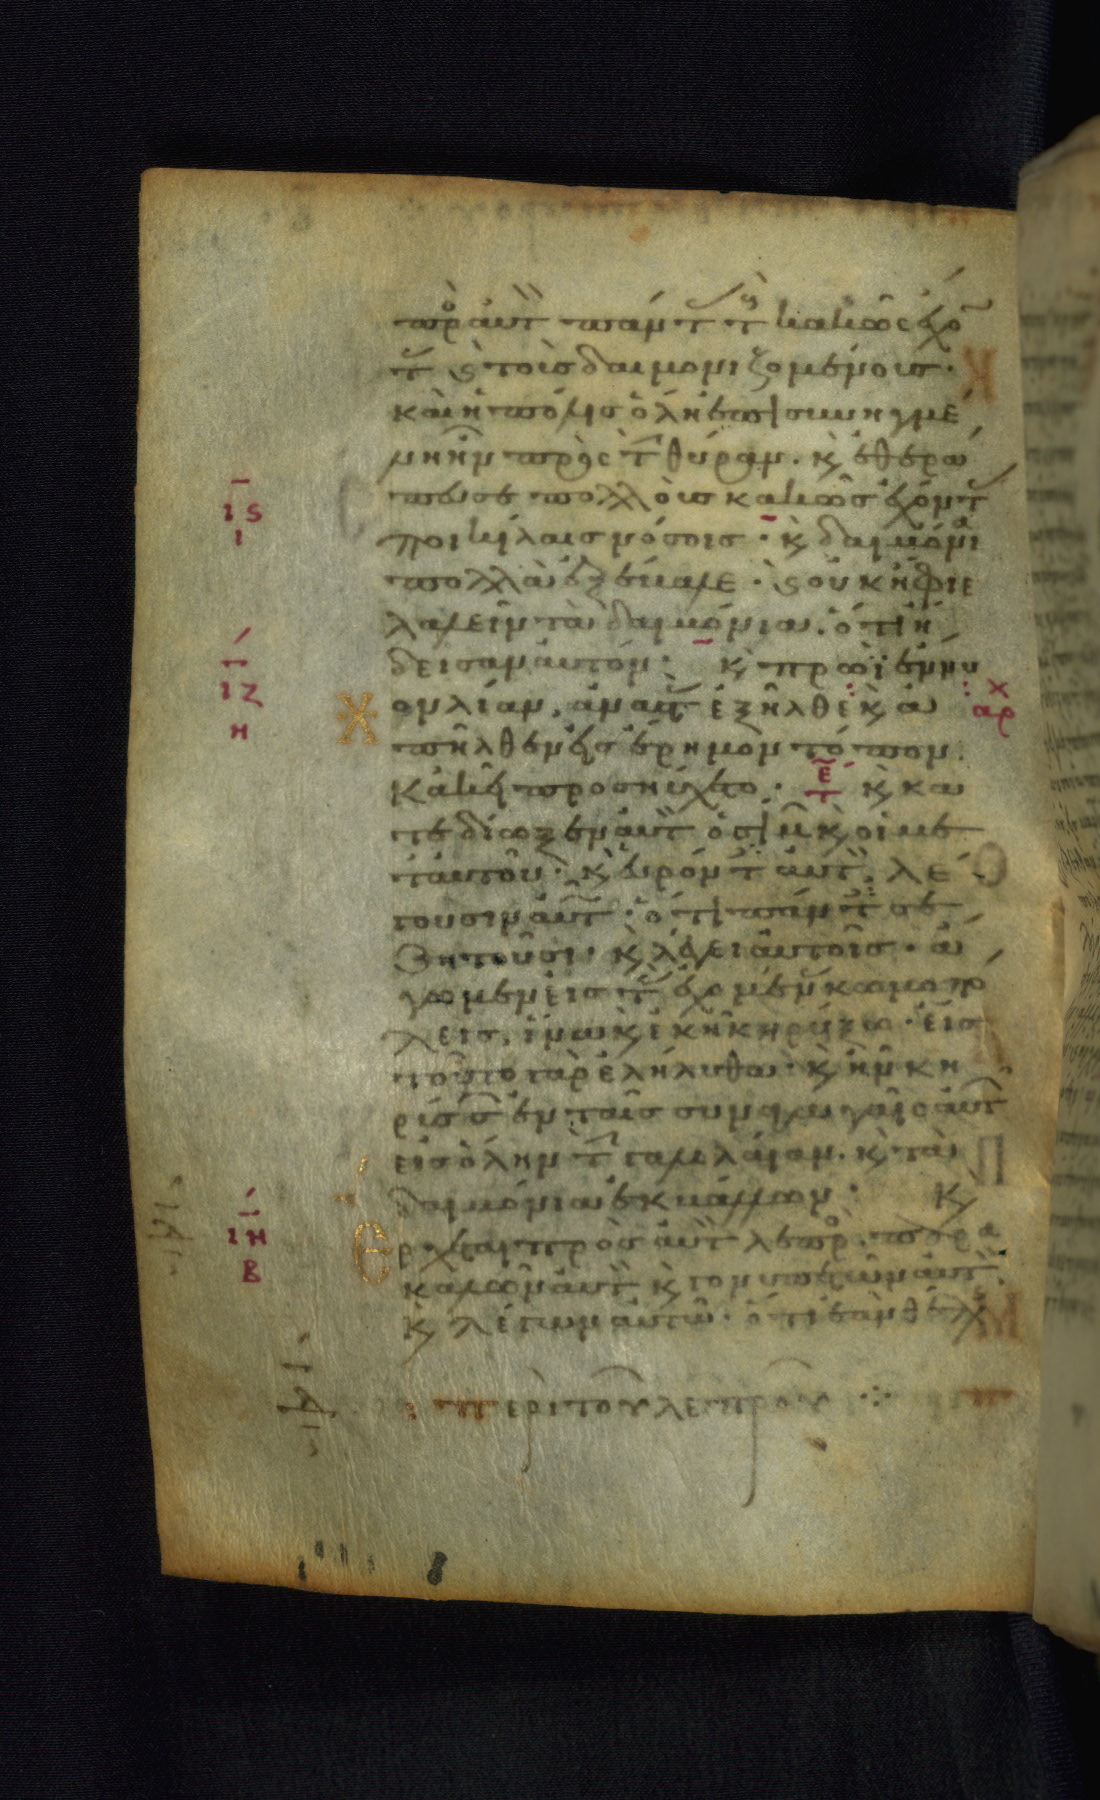 πρὸς αὐτ πάντ τ κακῶς ἔχο
τ κ τοὺς δαιμονιζομένους·
καὶ ἡ πόλις ὅλη ἐπισυνηγμέ
νη ἦν πρὸς τ θύραν. κ ἐθερά
πευσε πολλοὺς κακῶς ἔχοντ
ποικίλαις νόσοις· κ δαιμόνι
πολλὰ ἐξέβαλε· κ οὐκ ἤφιε
λαλεῖν τὰ δαιμόνια. ὅτι ἤ
δεισαν αὐτόν· κ πρωῒ ἔννυ
χον λίαν, ἀναστ ἐξῆλθε κ ἀ
πῆλθεν εἰς ἔρημον τόπον.
κἀκεῖ προσηύχετο· κ κα
τεδίωξεν αὐτ ὁ σίμων κ οἱ με
τ αὐτοῦ· κ εὑρόντ αὐτ, λέ
γουσιν αὐτ· ὅτι πάντ σε
ζητοῦσι· κ λέγει αὐτοῖς· ἄ
γωμεν εἰς τ ἐχομέν κωμοπό
λεις, ἵνα κἀκεῖ κηρύξω· εἰς
τοῦτο γὰρ ἐλήλυθα· κ ἦν κη
ρύσσ ἐν ταῖς συναγωγαῖς αὐτ
εἰς ὅλην τ γαλιλαίαν. κ τὰ
δαιμόνια ἐκβάλλων· Κ
ἔρχεται πρὸς αὐτ λεπρ· παρα
καλῶν αὐτ κ γονυπετῶν αὐτ,
κ λέγων αὐτῶ· ὅτι ἐὰν θέλ
περὶ τοῦ λεπροῦ
ις
ι
ιζ
η
ιη
β
αρ